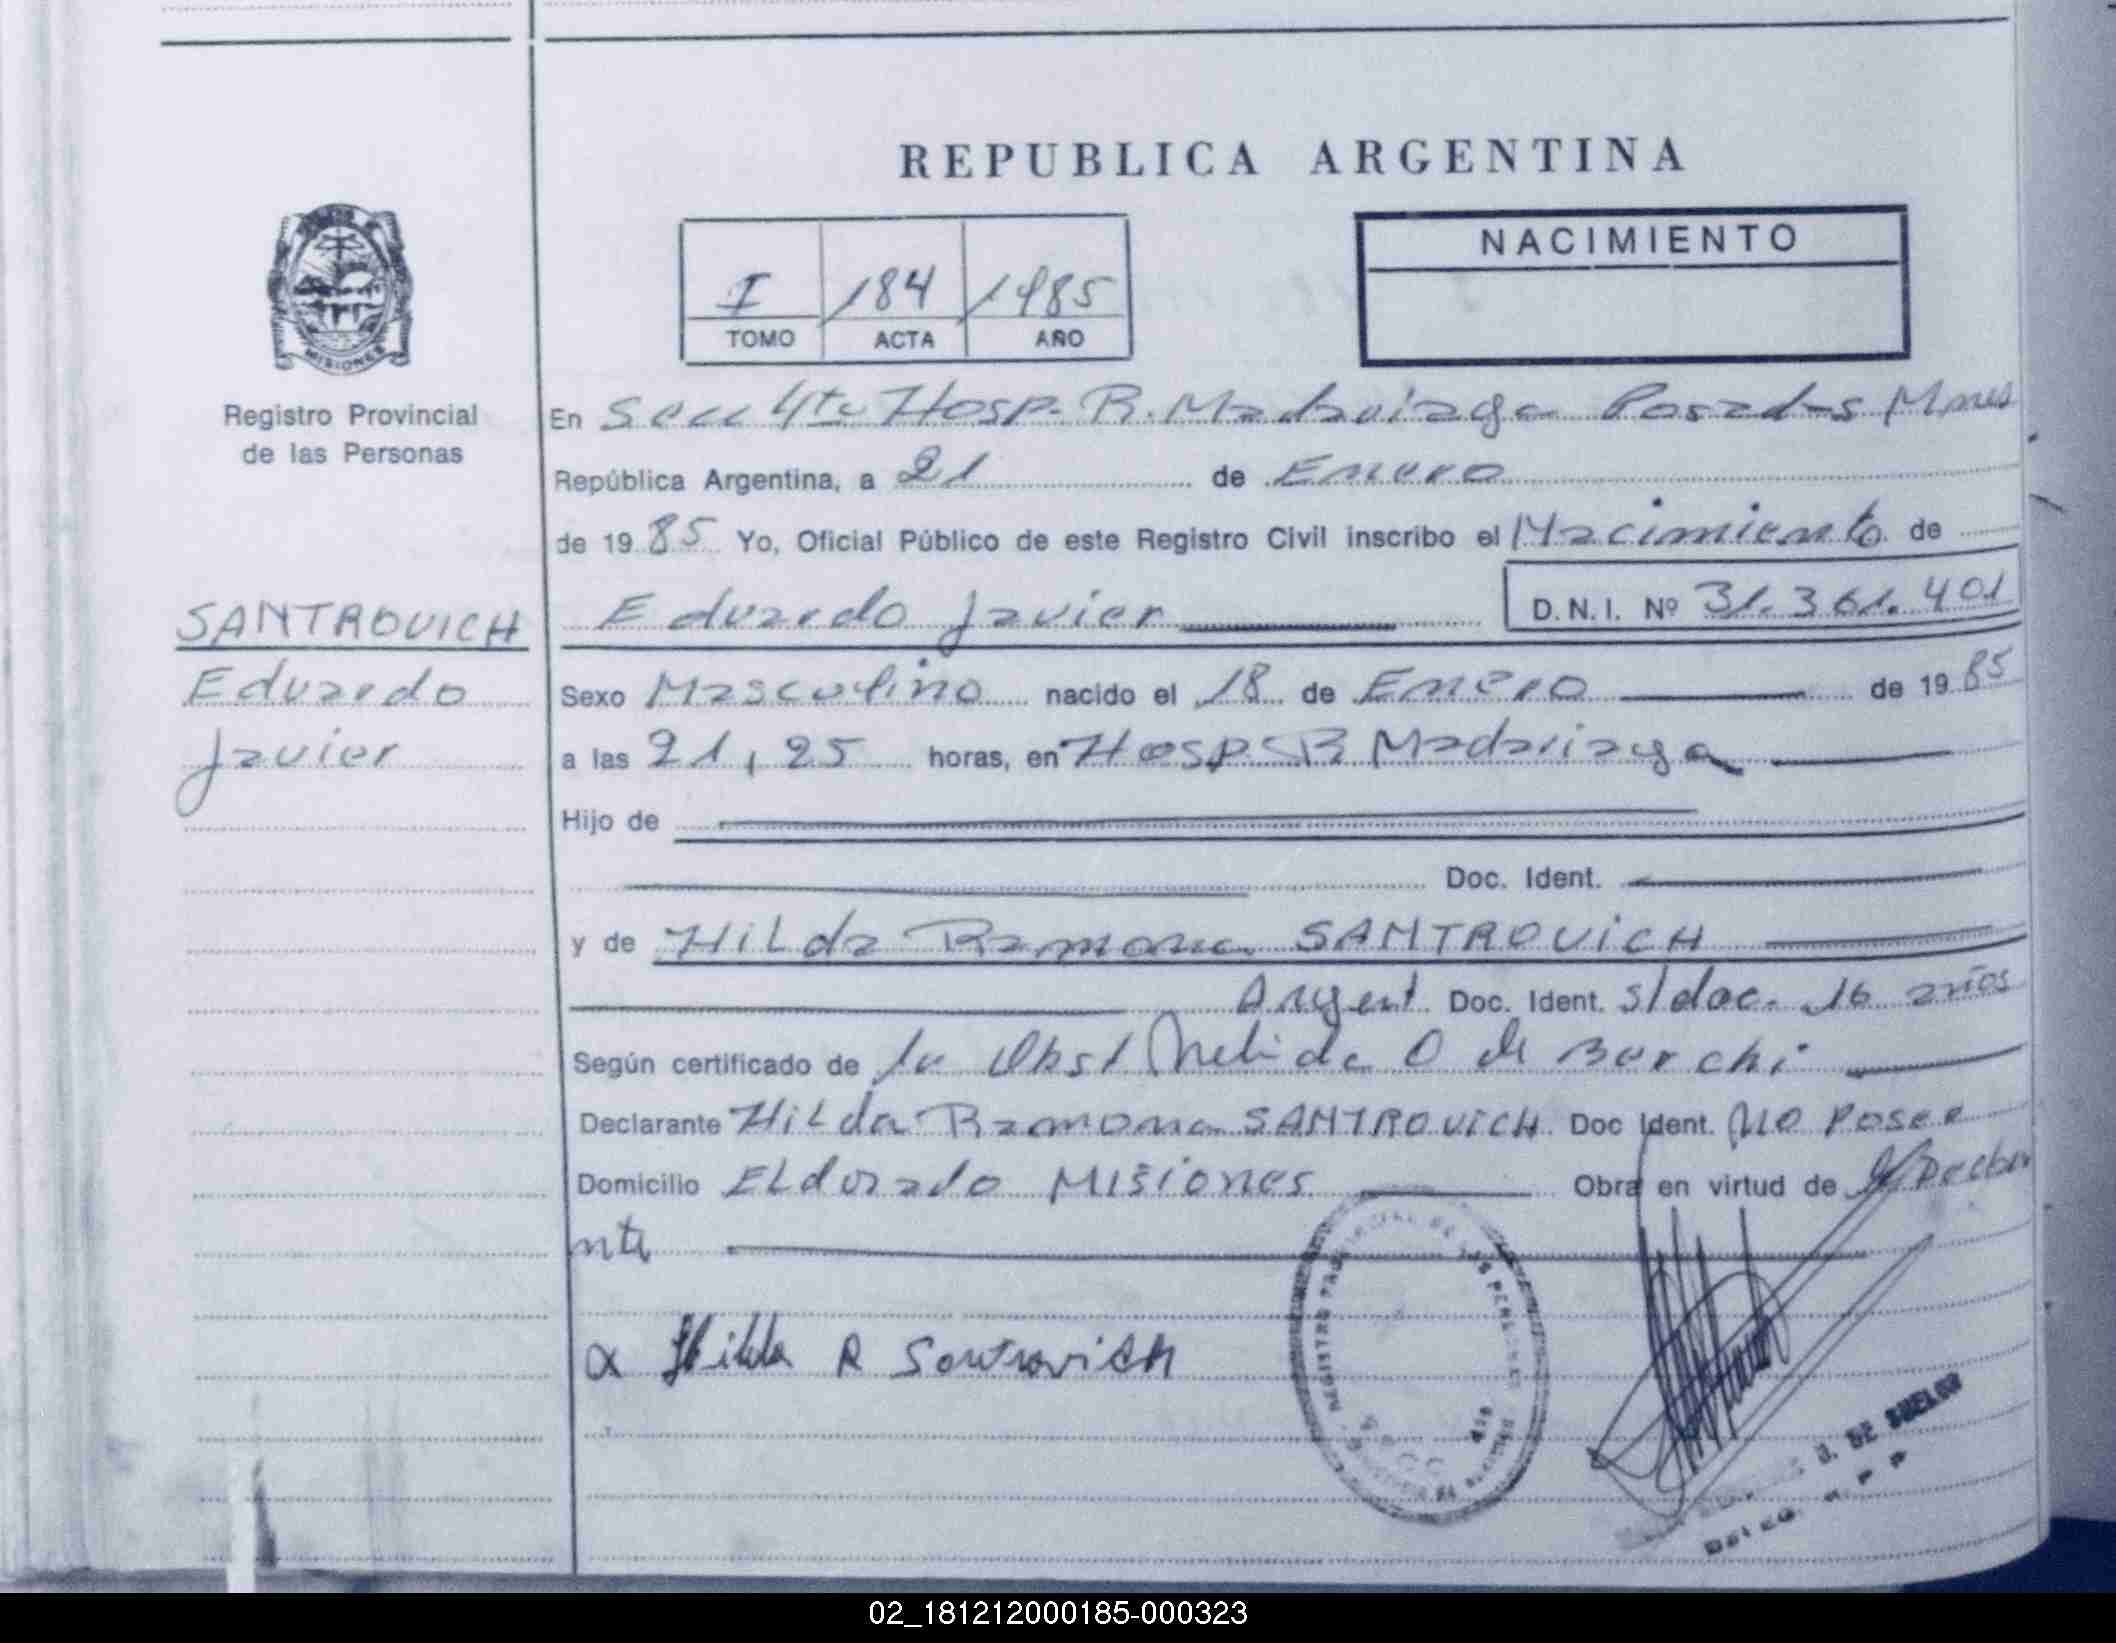 REPUBLICA ARGENTINA
I 184 1985
TOMO ACTA AÑO
NACIMIENTO
MISIONES
Registro Provincial
de las Personas
SANTROVICH
Eduardo
Javier
En Secc 4ta Hosp. R. Madariaga Posadas Mnes
República Argentina, a 21 de Enero
de 1985 Yo, Oficial Público de este Registro Civil inscribo el Nacimiento de
Eduardo Javier D.N.I. Nº 31.361.401
Sexo Masculino nacido el 18 de Enero de 1985
a las 21,25 horas, en Hosp R Madariaga
Hijo de
Doc. Ident.
y de Hilda Ramona SANTROVICH
Argent. Doc. Ident. s/doc. 16 años
Según certificado de la Obst Nelida O de Barchi
Declarante Hilda Ramona SANTROVICH Doc Ident. No posee
Domicilio Eldorado Misiones Obra en virtud de
nte
Hilda R Santrovich
REGISTRO
J. DE BUELOW
02_181212000185-000323